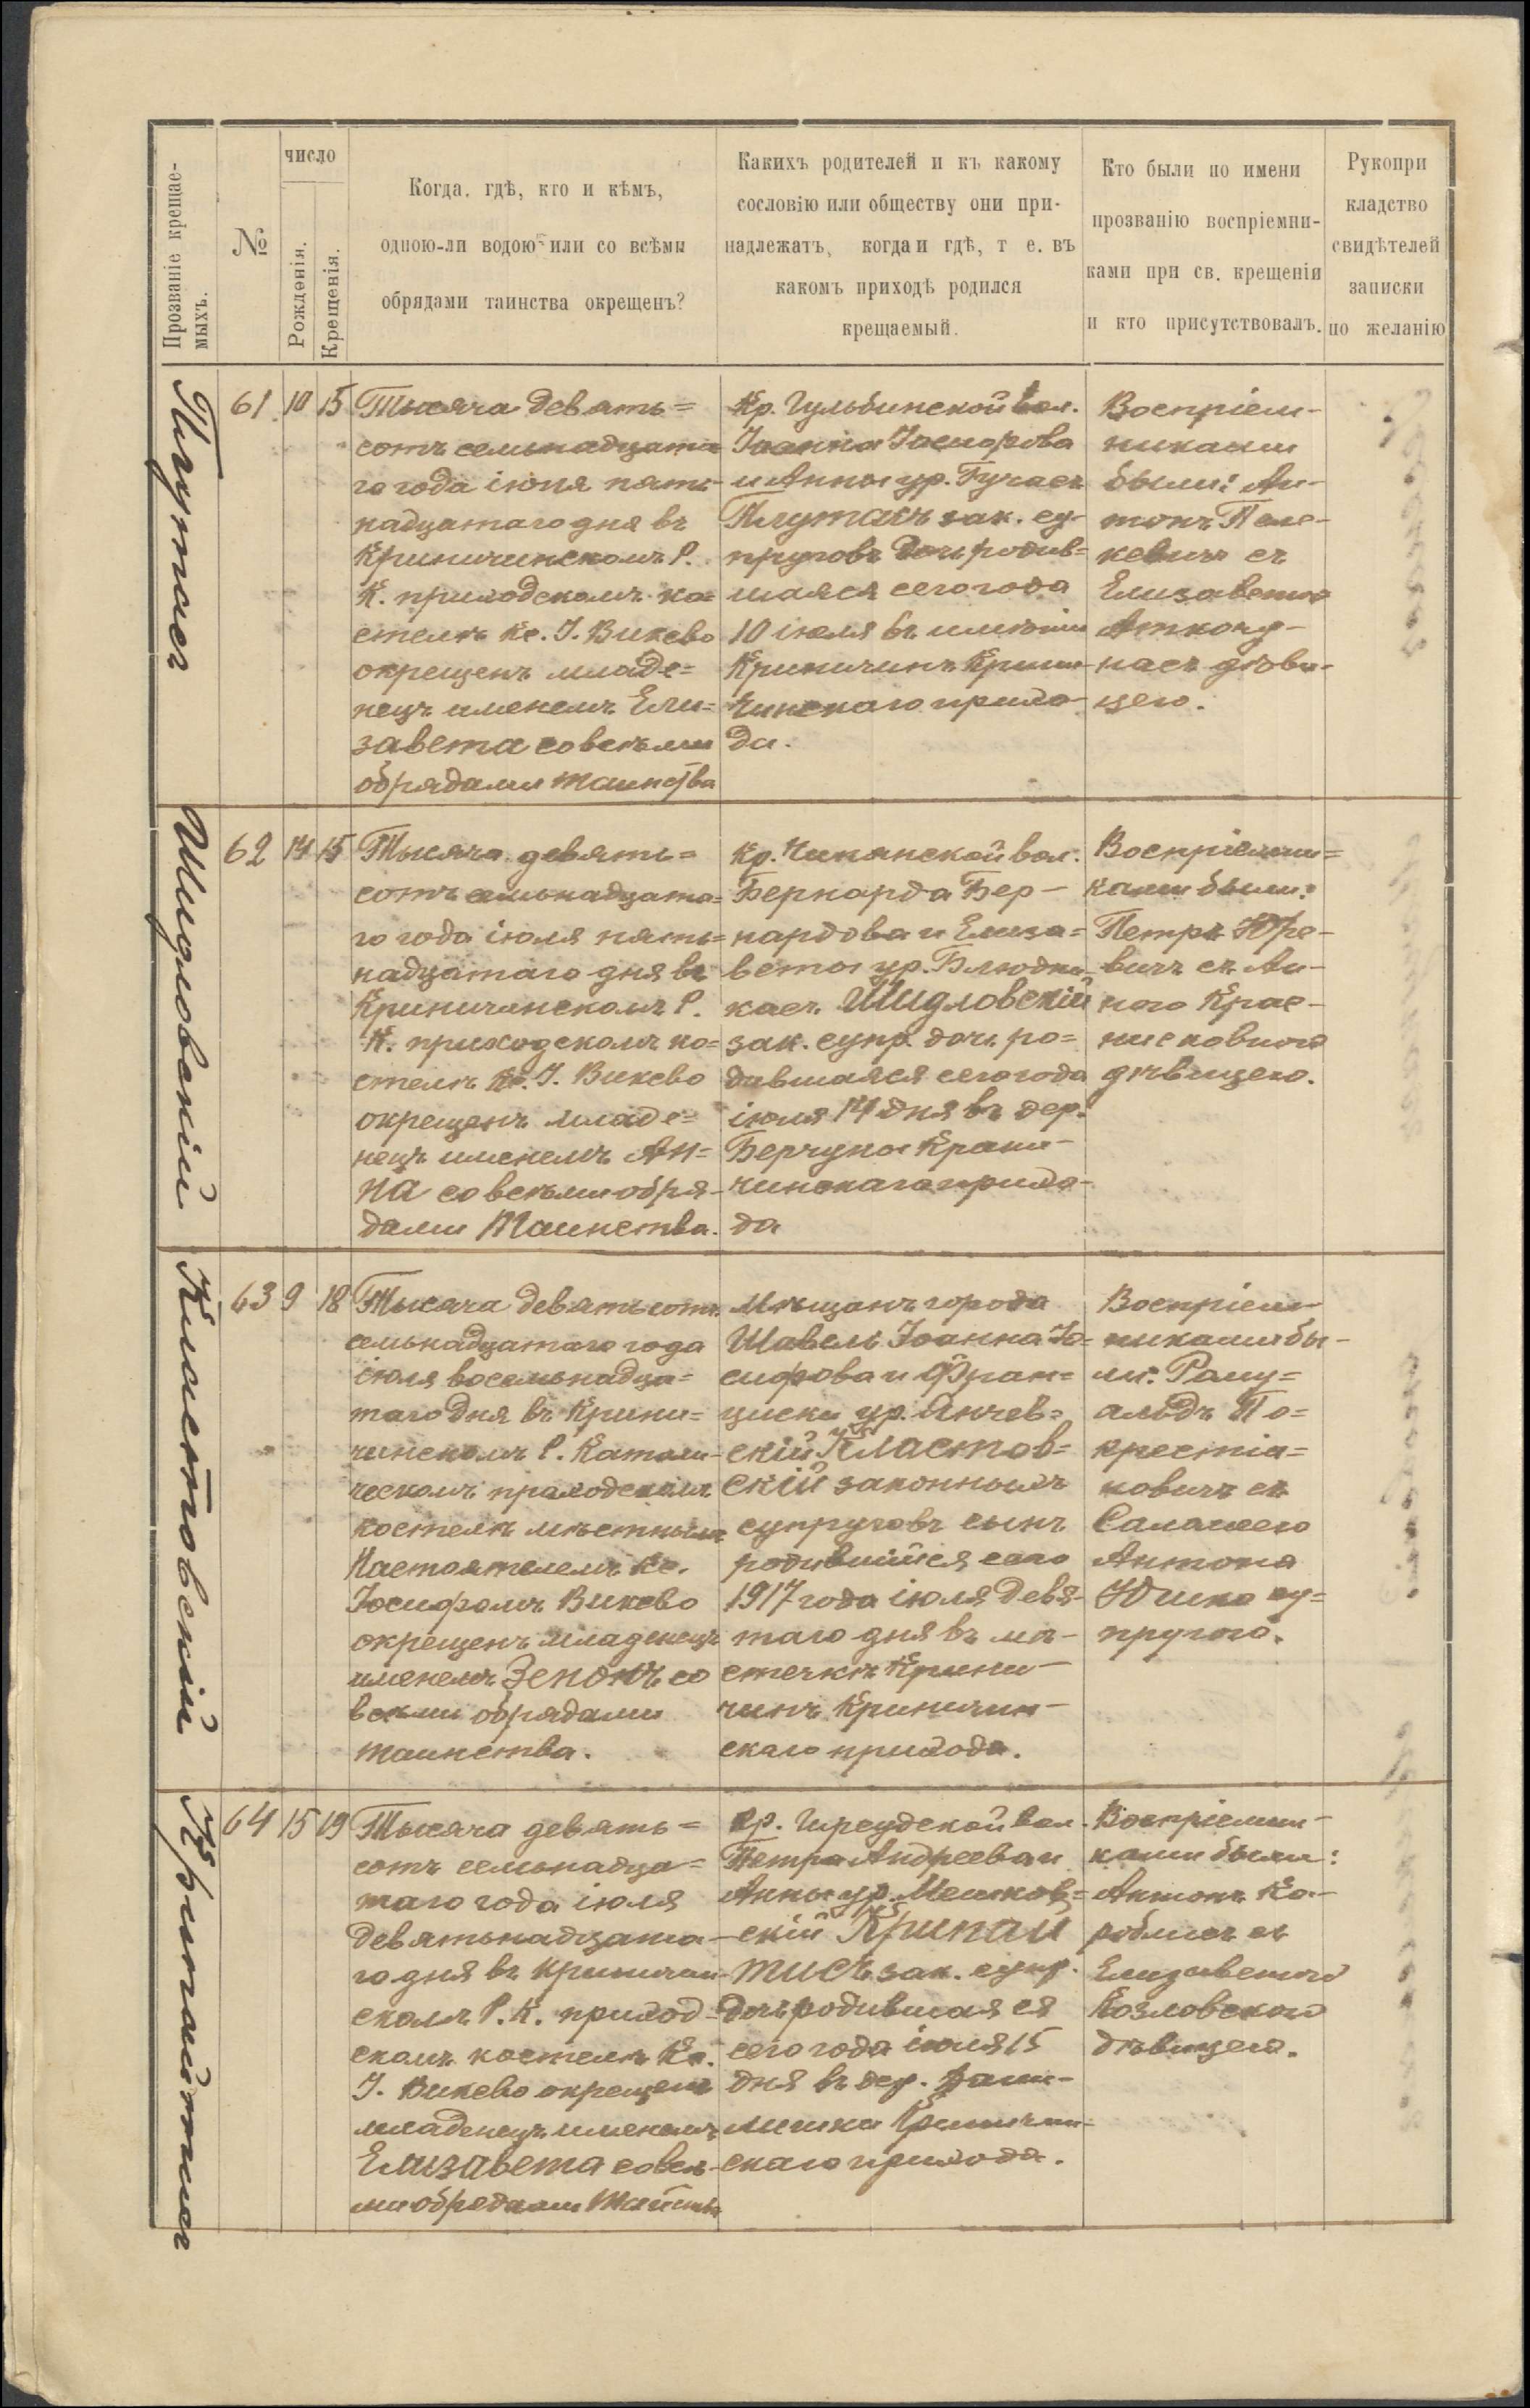 Прозваніе крещае-
мыхъ.
№
число
Рожденія.
Крещенія.
Когда, гдѣ, кто и кѣмъ,
одною-ли водою или со всѣми
обрядами таинства окрещенъ?
Какихъ родителей и къ какому
сословію или обществу они при-
надлежатъ, когда и гдѣ, т е. въ
какомъ приходѣ родился
крещаемый.
Кто были по имени
прозванію воспріемни-
ками при св. крещеніи
и кто присутствовалъ.
Рукопри
кладство
свидѣтелей
записки
по желанію
61 10 15
Тысяча девять=
сотъ семьнадцата
го года іюля пять-
надцатаго дня въ
Криничинскомъ Р.
К. приходскомъ ко=
стелѣ Кс. І. Виксво
окрещенъ младе=
нецъ именемъ Ели=
завета со всѣми
обрядами таинства
Кр. Гульбинской вол.
Іоанна Іосифова
и Анны ур.
зак. су-
пруговъ дочь родив=
шаяся сего года
10 іюля въ имѣніи
Криничинъ Крини-
чинскаго прихо-
да.
Воспріем-
никами
были: Ан-
тонъ
съ
Елизаветою
дѣви-
цею.
Шидловскій
62 14 15
Тысяча девять=
сотъ семьнадцата=
го года іюля пять=
надцатаго дня въ
Криничинскомъ Р.
К. приходскомъ ко=
стелѣ Кс. І. Виксво
окрещенъ младе=
нецъ именемъ Ан=
на со всѣми обря-
дами Таинства.
Кр. вол.
Бернарда Бер-
нардова и Елиза=
веты ур.
Шидловскій
зак. супр. дочь ро=
дившаяся сего года
іюля 14 дня въ дер.
Берчуны Крини-
чинскаго прихо-
да
Воспріемни=
ками были:
Петръ
съ Ан-
ною
дѣвицею.
Кластовскій
63 9 18
Тысяча девятьсотъ
семьнадцатаго года
іюля восемьнадца=
таго дня въ Крини=
чинскомъ Р. Католи-
ческомъ приходскомъ
костелѣ мѣстнымъ
Настоятелемъ Кс.
Іосифомъ Виксво
окрещенъ младенецъ
именемъ Зенонъ со
всѣми обрядами
таинства.
Мѣщанъ города
Шавель Іоанна Іо=
сифова и Фран=
циски ур. Янчев=
скій Кластов=
скій законныхъ
супруговъ сынъ
родившійся сего
1917 года іюля девя-
таго дня въ мѣ-
стечкѣ Крини-
чинъ Криничин-
скаго прихода.
Воспріем-
никами бы-
ли: Рому=
альдъ По=
крестіа=
ковичъ съ
Саломеею
Антона
Юшко су=
пругою.
64 15 19
Тысяча девять=
сотъ семьнадца=
таго года іюля
девятьнадцата-
го дня въ Криничин-
скомъ Р. К. приход=
скомъ костелѣ Кс.
І. Виксво окрещенъ
младенецъ именемъ
Елизавета со всѣ-
ми обрядами
Кр. вол.
Петра Андреева и
Анны ур. Мешков=
скій
зак. супр.
дочь родившаяся
сего года іюля 15
дня въ дер.
Криничин=
скаго прихода.
Воспріемни-
ками были:
Антонъ
съ
Елизаветою
Козловскою
дѣвицею.